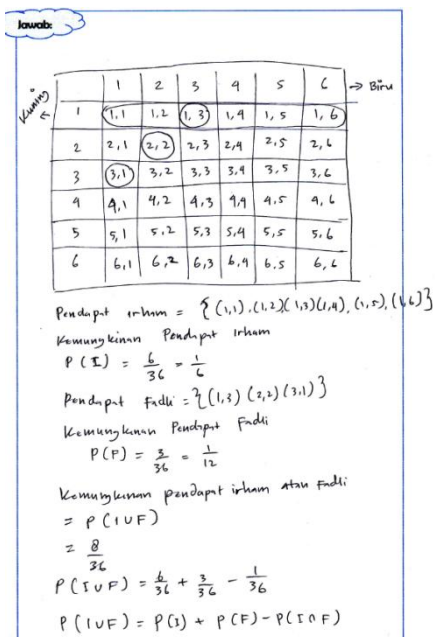 Jawab:
1 2 3 4 5 6 → Biru
Kuning ← 1 1,1 1,2 1,3 1,4 1,5 1,6
2 2,1 2,2 2,3 2,4 2,5 2,6
3 3,1 3,2 3,3 3,4 3,5 3,6
4 4,1 4,2 4,3 4,4 4,5 4,6
5 5,1 5,2 5,3 5,4 5,5 5,6
6 6,1 6,2 6,3 6,4 6,5 6,6
Pendapat irham = {(1,1),(1,2)(1,3)(1,4),(1,5),(1,6)}
Kemungkinan Pendapat Irham
P(I) = 6/36 = 1/6
Pendapat Fadli = {(1,3)(2,2)(3,1)}
Kemungkinan Pendapat Fadli
P(F) = 3/36 = 1/12
Kemungkinan pendapat irham atau Fadli
= P(I∪F)
= 8/36
P(I∪F) = 6/36 + 3/36 - 1/36
P(I∪F) = P(I) + P(F) - P(I∩F)